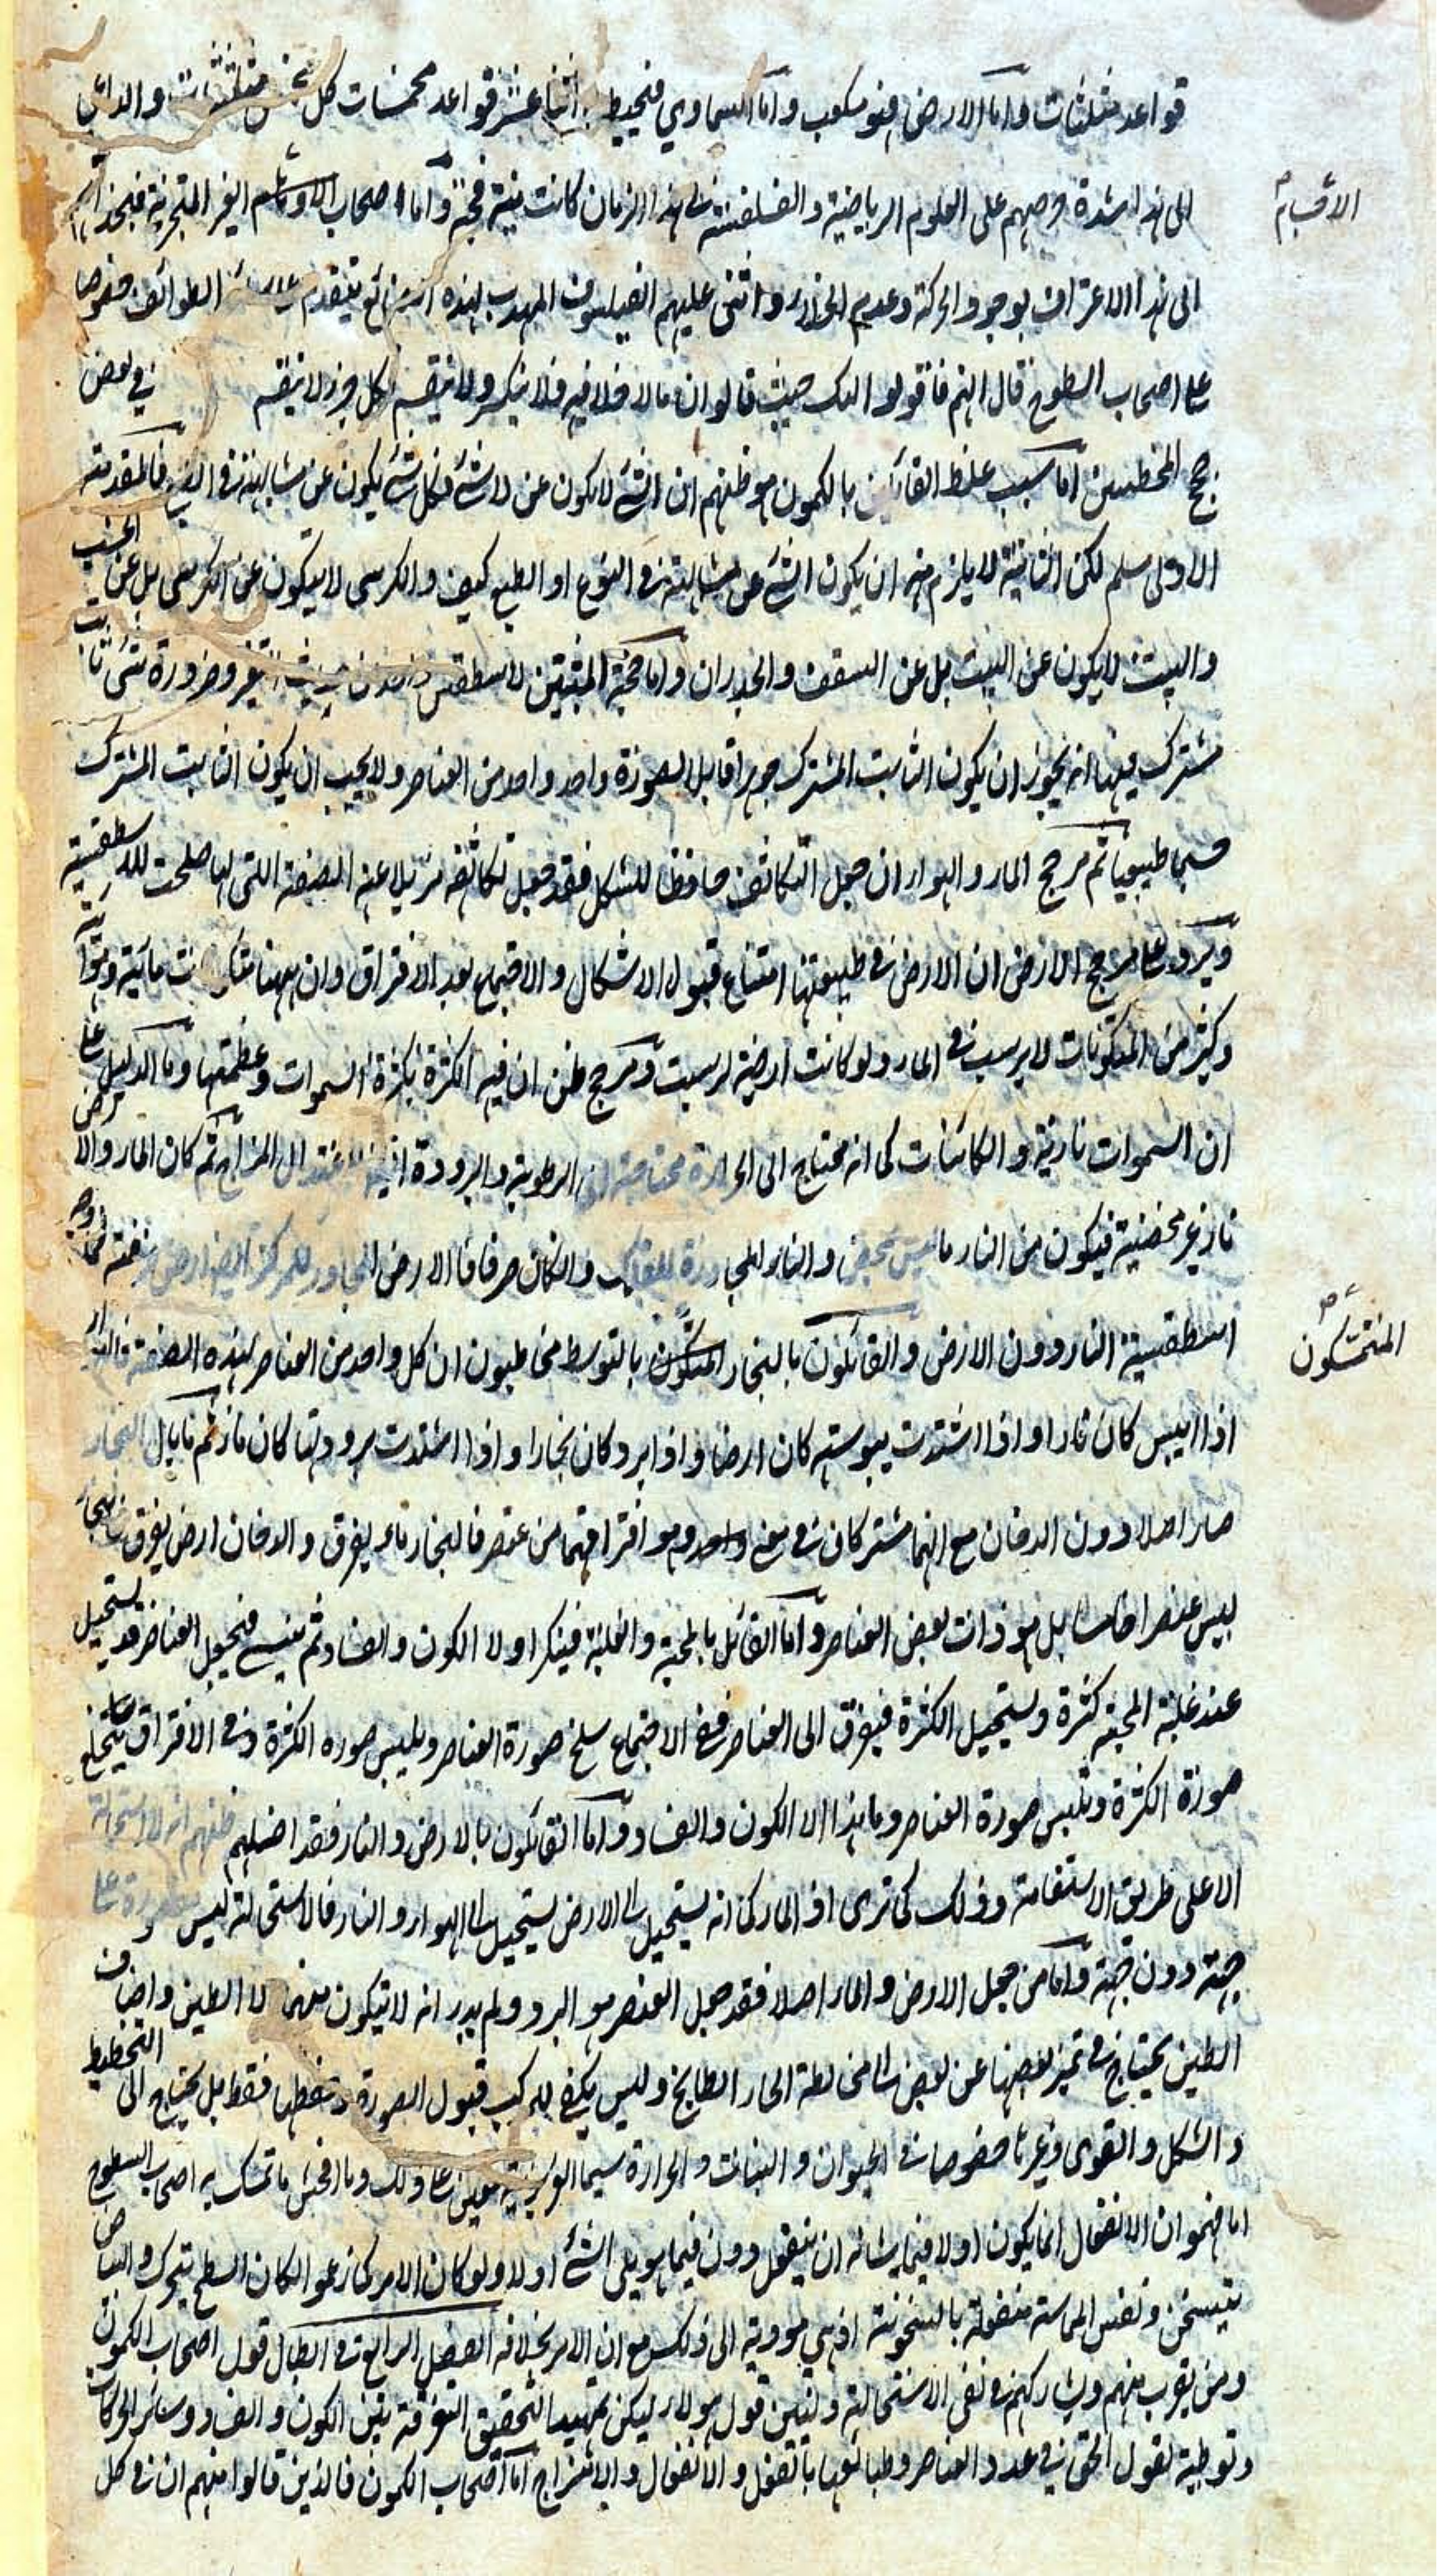 قواعد مثلثات واما الارض فهو مكعب واما السماوي فيحيط به اثنا عشر قواعد مخمسات كل مخمس والداعي
الى هذا شدة حرصهم على العلوم الرياضية والفلسفة في هذا الزمان كانت فيه فجة واما اصحاب الاجسام الغير المتجزية فيجذ
الاقسام
الى هذا الاعتراف بوجود الحركة وعدم الخلاء واثنى عليهم الفيلسوف المهدب لهذه الطوائف خصوصا
على اصحاب السطوح قال انهم فاقوا اولئك حيث قالوا ان ما لا خلا فيه فلا ينكسر ولا ينقسم كل جزء لا ينقسم في بعض
حجج المخطئين اما سبب غلط القائلين بالكمون هو ظنهم ان الشئ لا يكون عن لا شئ فكل شئ يكون عن مشابهه في الطبع فالمقدمة
الاولى مسلم لكن الثانية لا يلزم منه ان يكون الشئ عن مشابهه في النوع او الطبع كيف والكرسى لا يتكون عن الكرسى بل عن الخشب
والبيت لا يكون عن البيت بل عن السقف والجدران واما حجة المثبتين لاسطقس واحد من حيث التغير وضرورة شئ ثابت
مشترك فيها انه يجوز ان يكون الثابت المشترك جوهرا قابلا لصورة واحد واحد من العناصر ولا يجب ان يكون الثابت المشترك
جسما طبيعيا ثم مرجح الماء والهواء ان جعل التكاثف حافظا للشكل فقد جعل تكاثفه مزيلا عنه الصفة اللتى بها صلحت للاسطقسية
ويرد على مرجح الارض ان الارض في طبيعتها امتناع قبول الاشكال والاجتماع بعد الافتراق وان ههنا متكونات مائية وهوائية
وكثير من المتكونات لا يرسب في الماء ولو كانت ارضية لرسبت ومرجح ظن ان فيه الكثرة بكثرة السموات وعظمتها وما الدليل على
ان السموات نارية والكائنات كما انه محتاج الى الحرارة محتاجة الى الرطوبة والبرودة ايضا لاعتدال المزاج ثم كان الماء والارض
نار غير محضية فيكون من النار ما ليس بمحض والنار المجاورة للفلك وان كان صرفا فالارض المجاور للمركز ايضا ارض صرفة فما وجه
اسطقسية النار دون الارض والقائلون بالبخار المتمسكون بالتوسط مخاطبون ان كل واحد من العناصر لهذه الصفة فالنار
المتمسكون
اذا ايبس كان نارا واذا اشتدت يبوسته كان ارضا واذا برد كان بخارا واذا اشتدت برودتها كان ماء ثم ما بال البخار
صار اصلا دون الدخان مع انهما مشتركان في معنى واحد وهو افتراقهما من عنصر فالبخار ماء يفرق والدخان ارض يفرق فالبخار
ليس عنصرا خامسا بل هو ذات بعض العناصر واما القائل بالمحبة والغلبة فينكر اولا الكون والفساد ثم ينسى فيجعل العناصر قد يستحيل
عند غلبة المحبة كثرة ويستحيل الكثرة فيفرق الى العناصر ففي الاجتماع سلخ صورة العناصر ويلبس صورة الكثرة وفي الافتراق يتخلع
صورة الكثرة وتلبس صورة العناصر وما هذا الا الكون والفساد واما القائلون بالارض والنار فقد اضلهم ظنهم انه لا استحالة
الا على طريق الاستقامة وذلك كما ترى اذ الماء كما انه يستحيل الى الارض يستحيل الى الهواء والنار فالاستحالة ليس مقصورة على
جهة دون جهة واما من جعل الارض والماء اصلا فقد جعل العنصر هو البرد ولم يدر انه لا يتكون منهما الا الطين واصناف
الطين يحتاج في تميز بعضها عن بعض الى مخالطة الحار الطابخ وليس يكفي للمركب قبول الصورة وحفظها فقط بل يحتاج الى التخطيط
والشكل والقوى وغيرها خصوصا في الحيوان والنبات والحرارة سيما الغريزية معين على ذلك وما افحش ما تمسك به اصحاب السطوح
اما فهموا ان الانفعال انما يكون اولا فيما بشانه ان ينفعل دون فيما هو يلي الشئ اولا ولو كان الامر كما زعموا لكان السطح يتحرك والبياض
يتسخن ونفس المماسة منفعلة بالسخونة اذ هي مودية الى ذلك مع ان الامر بخلافه الفصل الرابع في ابطال قول اصحاب الكمون
ومن يقرب منهم ويشاركهم في نفي الاستحالة وليس قول هولاء ليكن تمهيدا لتحقيق التفرقة بين الكون والفساد وسائر الحركات
وتوطية لقول الحق في عدد العناصر وطبائعها بالفعل والانفعال والامتزاج اما اصحاب الكمون فالذين قالوا منهم ان في كل